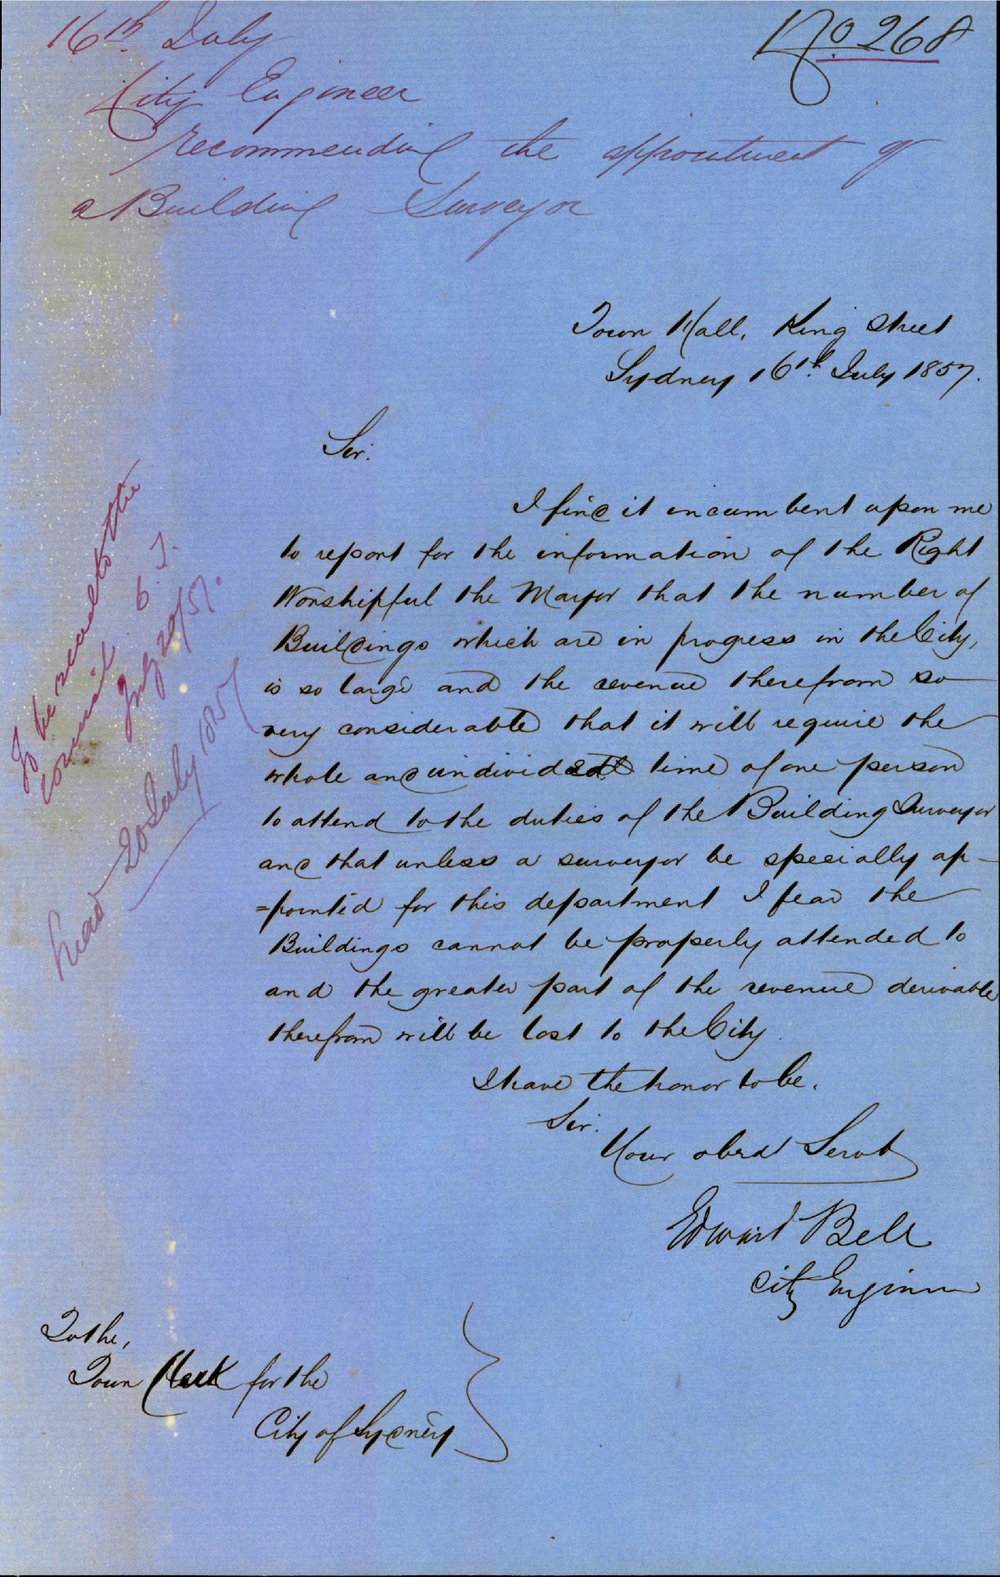 No 268
16th July
City Engineer
recommending the appointment of
a Building Surveyor
Town Hall, King Street
Sydney 16th July 1857.
Sir.
I find it incumbent upon me
to report for the information of the Right
Worshipful the Mayor that the number of
Buildings which are in progress in the City,
is so large and the revenue therefrom so
very considerable that it will require the
whole and undivided time of one person
to attend to the duties of the Building Surveyor
and that unless a surveyor be specially ap-
=pointed for this department I fear the
Buildings cannot be properly attended to
and the greater part of the revenue derivable
therefrom will be lost to the City.
I have the honor to be.
Sir.
Your obed Servt
Edward Bell
City Engineer
To the,
Town Clerk for the
City of Sydney
To be read to the
Council.
July 20/57.
Read 20 July 1857